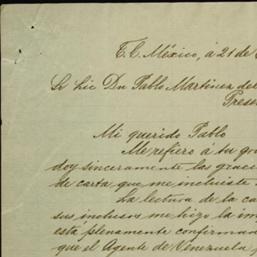 T. C. México, á 21 de
Sr Lic Dn Pablo Martinez del
Presen
Mi querido Pablo
Me refiero á tu
doy sinceramente las grac
de carta que me incluiste
La lectura de la ca
sus inclusos me hizo la im
está plenamente confirma
que el Agente de Venezuela